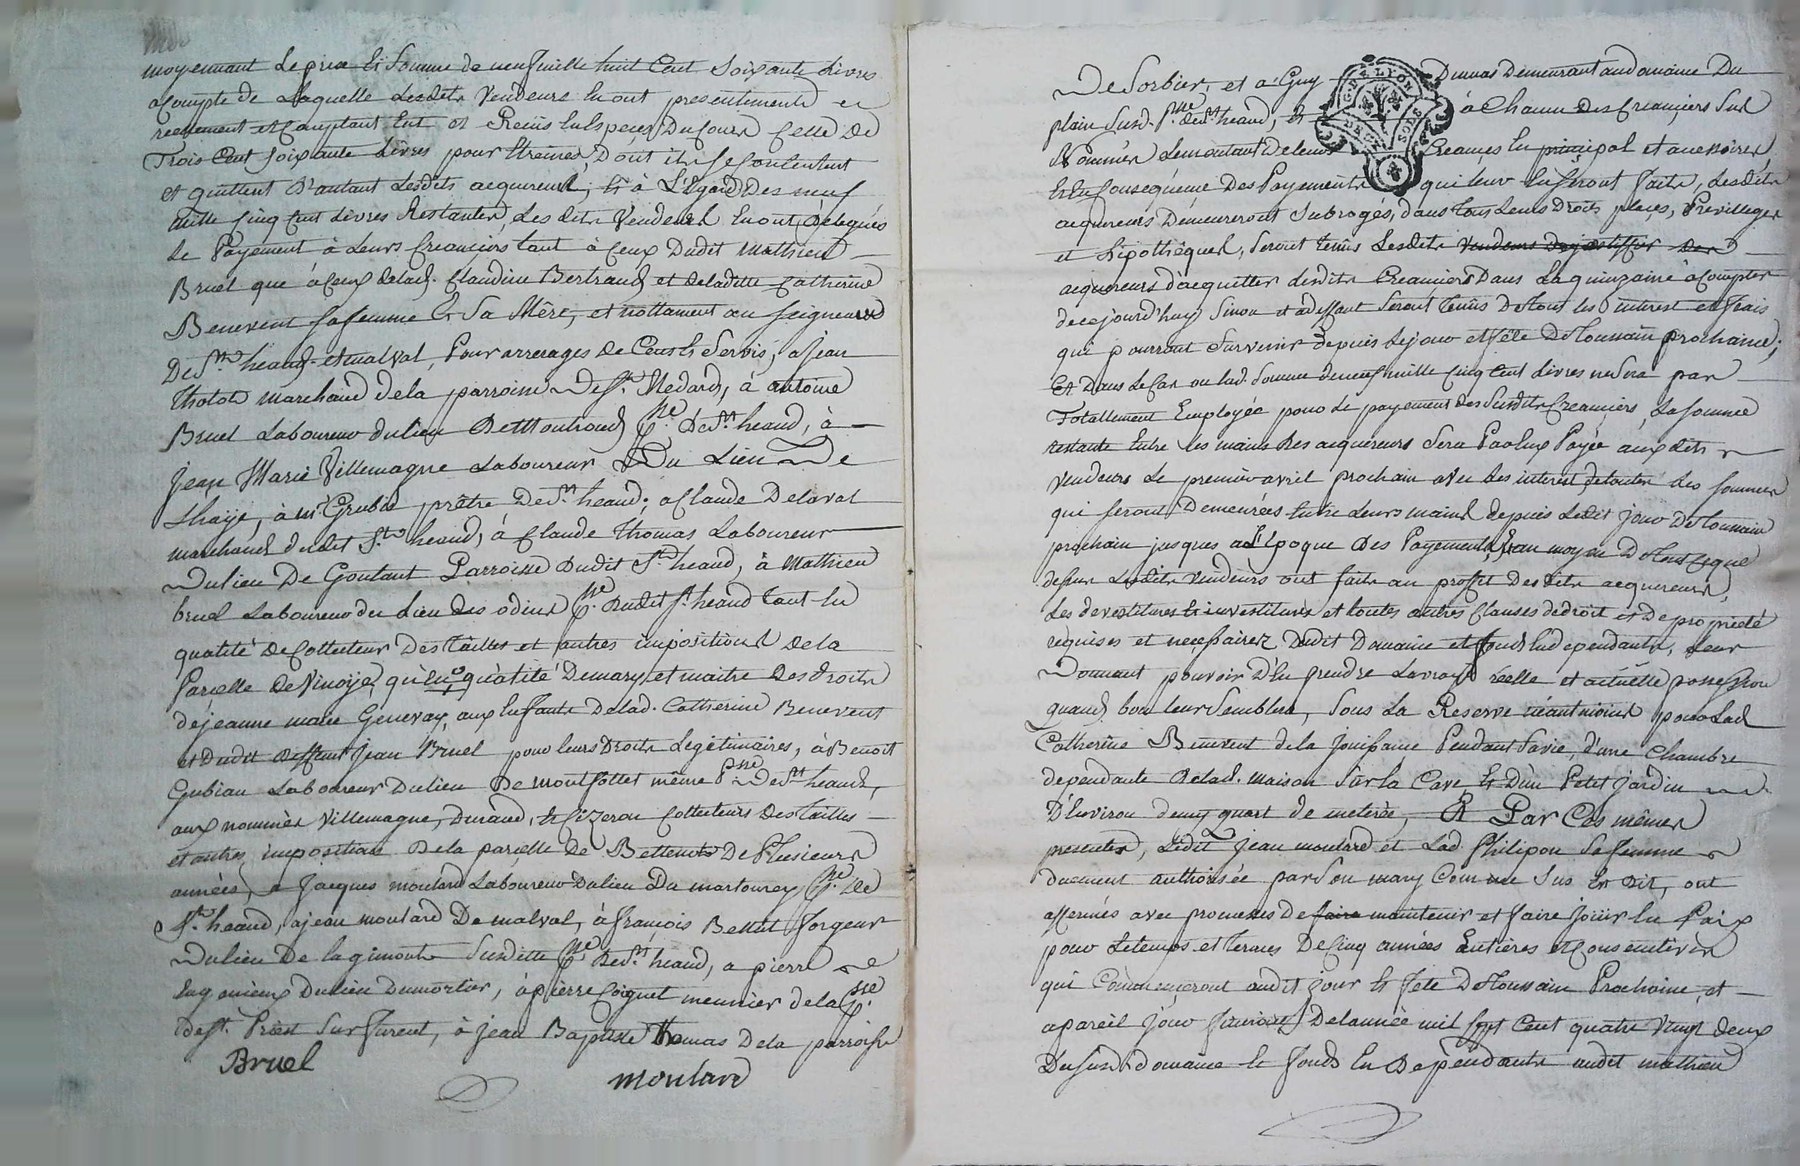 moyennant le prix et somme de neuf mille huit cent soixante livres
acompte de laquelle lesdits vendeurs en ont presentement et
reellement et comptant eut et reçus en especes du cours celle de
Trois cent soixante livres pour etreines, dont ils se contentent
et quittent d'autant lesdits acquereurs; et à l'égard des neuf
mille cinq cent livres restantes, lesdits vendeurs en ont délégués
le Payement à leurs creanciers tant à ceux dudit mathieu
Bruel que à ceux delad. Claudine Bertrand et de laditte Catherine
Benevent sa femme et sa Mère, et nottament au seigneur
De St. heand et malval, Pour arrerages de Cens et Servis, a jean
Thotot marchand de la parroisse De St. Medard, à antoine
Bruel Laboureur du lieu De Montroud Psse. De St. heand, à
jean Marie Villemagne Laboureur Du Lieu De
Lhaije, à mr. Grubis prêtre De St. heand; a Claude Delaval
marchand dudit St. heand, à Claude thomas Laboureur
Du lieu De Goutant Parroisse dudit St. heand, à Mathieu
bruel Laboureur du lieu des odins Psse. dudit St. heand tant en
qualité de Collecteur des tailles et autres impositions de la
Parcelle De Vinoije, qu'en qualité De mary et maitre des droits
de jeanne marie Genevay, aux enfants delad. Catherine Benevent
et dudit deffunt jean Bruel pour leurs Droits Legitimaires, à Benoit
Gubian Laboureur du lieu De montfollet même Psse. De St. heand,
aux nommés Villemagne, Durand, et Cizeron Collecteurs des tailles
et autres impositions De la parcelle De De Plusieurs
années, a Jacques moulard Laboureur du lieu Du martourey Psse. De
St. heand, a jean moulard De malval, à françois Bettut forgeur
Du lieu De la gimonte susditte Psse. De St. heand, a pierre
du lieu Dumortier, à pierre Coignet meunier de la Psse.
De St. Priest sur furent, à jean Baptiste thomas De la parroisse
Bruel
moulard
De Sorbier, et a Guy Dumas Demeurant au domaine Du
plain susd. Psse. de St. heand, et à Chacun des Creanciers sus
Nommés le montant de leurs Creances en principal et accessoires
et en Consequence Des Payements qui leur en seront faits, lesdits
acquereurs Demeureront subrogés, dans tous leurs Droits places, Privilleges
et hipothêques, seront tenüs lesdits vendeurs de justiffier des
acquereurs d'acquitter lesdits Creanciers Dans la quinzaine a Compter
de ce jourd'huy sinon et a deffaut seront tenüs De tout les interest et frais
qui pourront survenir depuis le jour et fête De Toussain prochaine;
Et Dans le Cas ou lad. somme de neuf mille cinq cent livres ne sera pas
Totallement Employée pour le payement des susdits Creanciers, la somme
restante entre les mains des acquereurs sera Par eux Payée auxdits
vendeurs le premier avril prochain avec les interest de toutes les sommes
qui seront Demeurées entre leurs mains depuis ledit jour De toussain
prochain jusques a l'Epoque des Payements, au moyen De tout ce que
dessus lesdits vendeurs ont faits au proffit desdits acquereurs,
les devestitures et investitures et toutes autres Clauses de droit et De proprieté
requises et necessaires Dudit Domaine et fonds en dependants, leur
Donnant pouvoir D'en prendre la vraye réelle et actuelle possession
quand bon leur semblera, sous La Reserve néantmoins pour lad.
Catherine Benevent de la jouissance Pendant sa vie, d'une Chambre
dependante De lad. maison sur la Cave et D'un Petit jardin
D'Environ demy quart de meterée, Et Par Ces mêmes
presentes, ledit jean moulard et Lad. Philipon sa femme
duement authorisée par son mary Comme sus Est Dit, ont
affermés avec promesses De faire maintenir et faire jouir en Paix
pour le tems et termes De Cinq années Entières et Consecutives
qui Commenceront audit jour et fete De toussain Prochaine, et
apareil jour finiront De l'année mil sept cent quatre vingt deux
Du susd. domaine et fonds En Dependants audit mathieu
GEN. DE LYON
DEUX SOLS